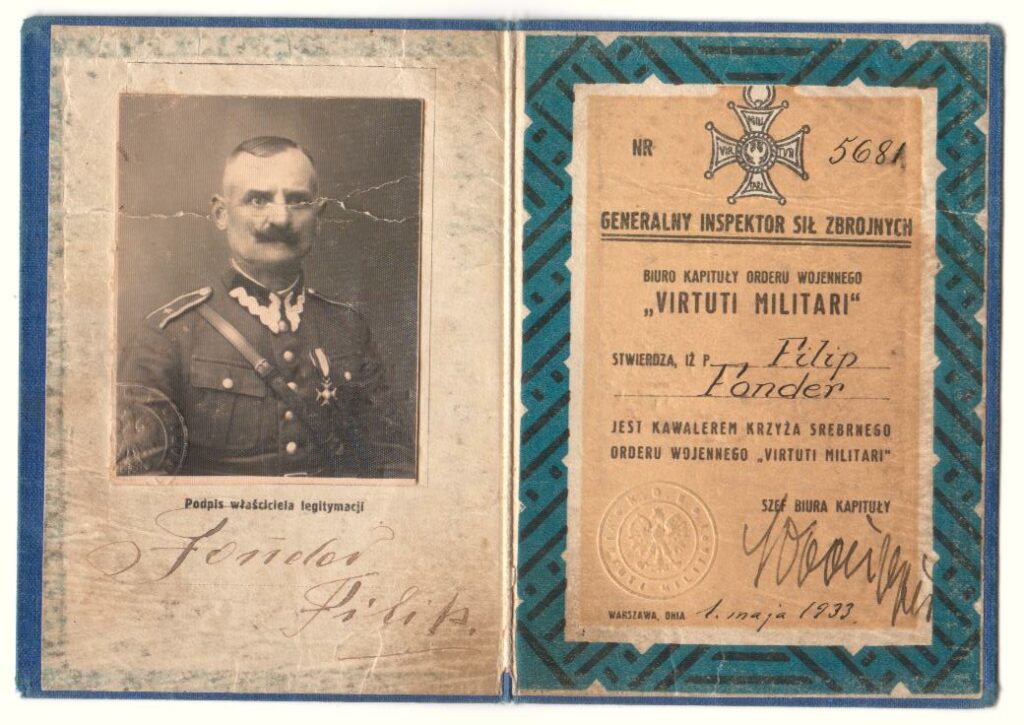 Podpis właściciela legitymacji
Fonder
Filip.
NR 5681
VIRTUTI
MILITARI
GENERALNY INSPEKTOR SIŁ ZBROJNYCH
BIURO KAPITUŁY ORDERU WOJENNEGO
„VIRTUTI MILITARI“
STWIERDZA, IŻ P. Filip
Fonder
JEST KAWALEREM KRZYŻA SREBRNEGO
ORDERU WOJENNEGO „VIRTUTI MILITARI“
SZEF BIURA KAPITUŁY
WARSZAWA, DNIA 1. maja 1933.